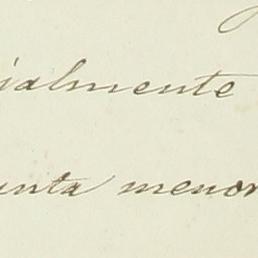 ialmente
unta menor